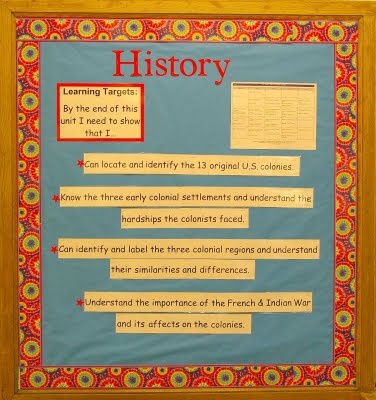 History
Learning Targets:
By the end of this
unit I need to show
that I...
Can locate and identify the 13 original U.S. colonies.
Know the three early colonial settlements and understand the
hardships the colonists faced.
Can identify and label the three colonial regions and understand
their similarities and differences.
Understand the importance of the French & Indian War
and its affects on the colonies.